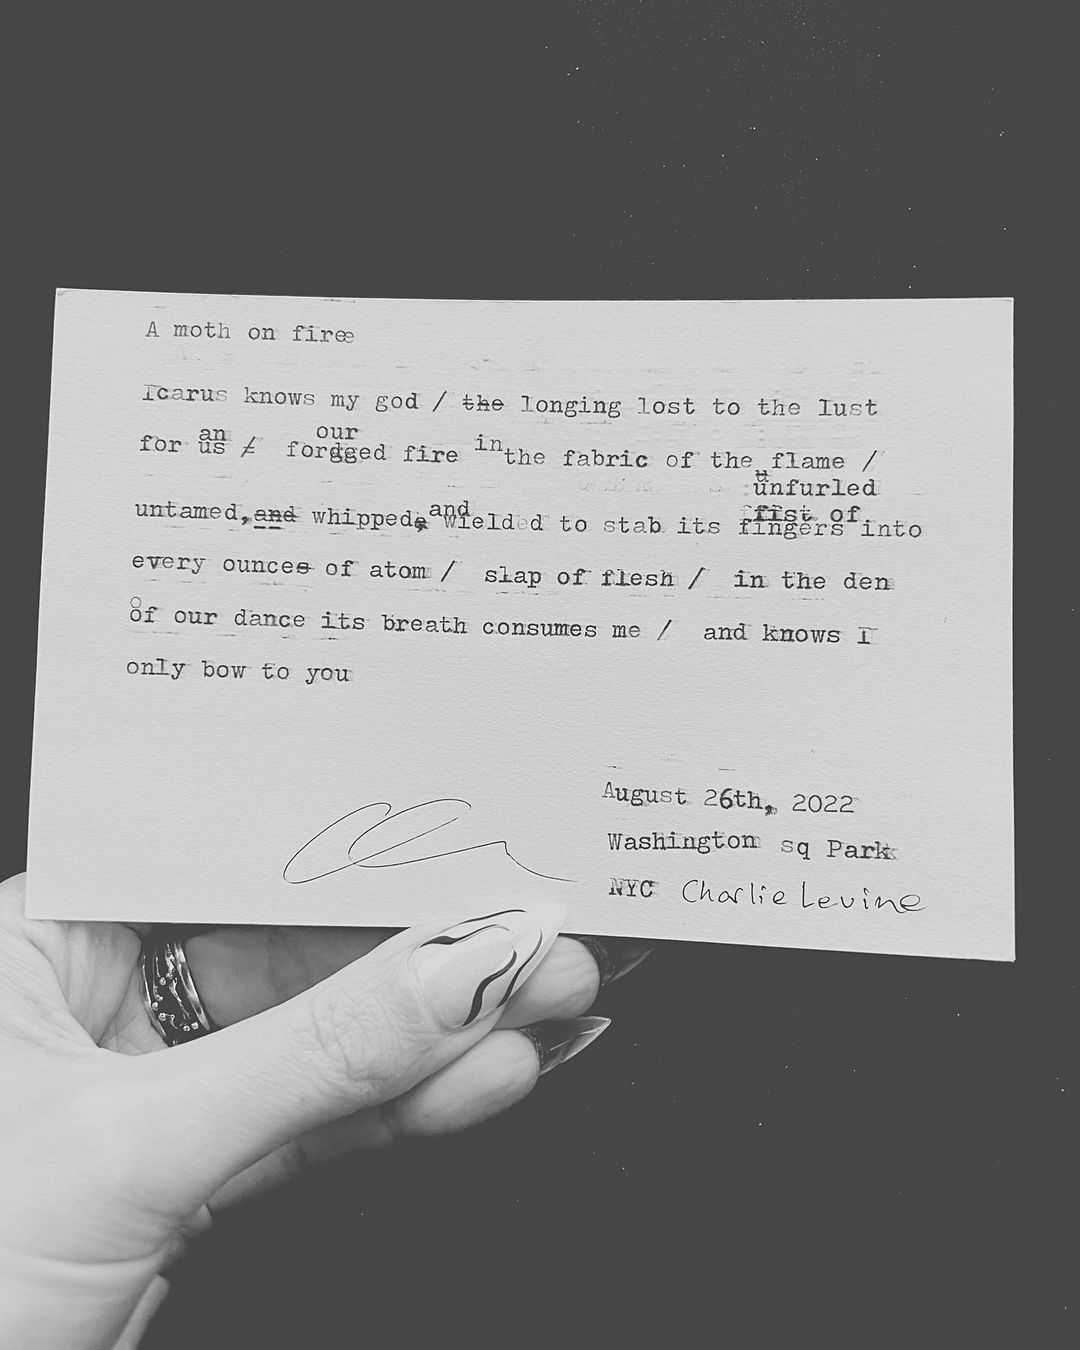 A moth on firee
Icarus knows my god / the longing lost to the lust
an our
for us / fordged fire in the fabric of the flame /
unfurled
and fist of
untamed, and whipped, wielded to stab its fingers into
every ounces of atom / slap of flesh / in the den
of our dance its breath consumes me / and knows I
only bow to you
August 26th, 2022
Washington sq Park
NYC Charlie Levine